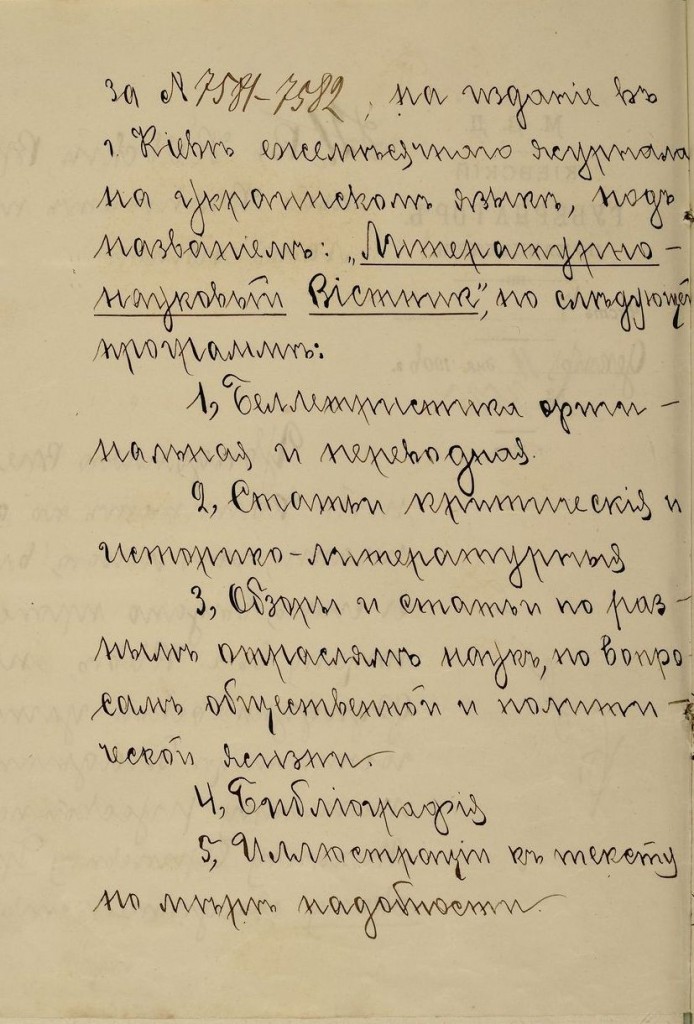 за N 7581-7582, на изданіе въ
г. Кіевѣ ежемѣсячнаго журнала
на украинскомъ языкѣ, подъ
названіемъ: „Литературно-
науковый Вістник", по слѣдующей
программѣ:
1, Беллетристика ориги-
нальная и переводная.
2, Статьи критическія и
историко-литературныя
3, Обзоры и статьи по раз-
нымъ отраслямъ наукъ, по вопро-
самъ общественной и полити-
ческой жизни.
4, Библіографія
5, Иллюстраціи къ тексту
по мѣрѣ надобности.